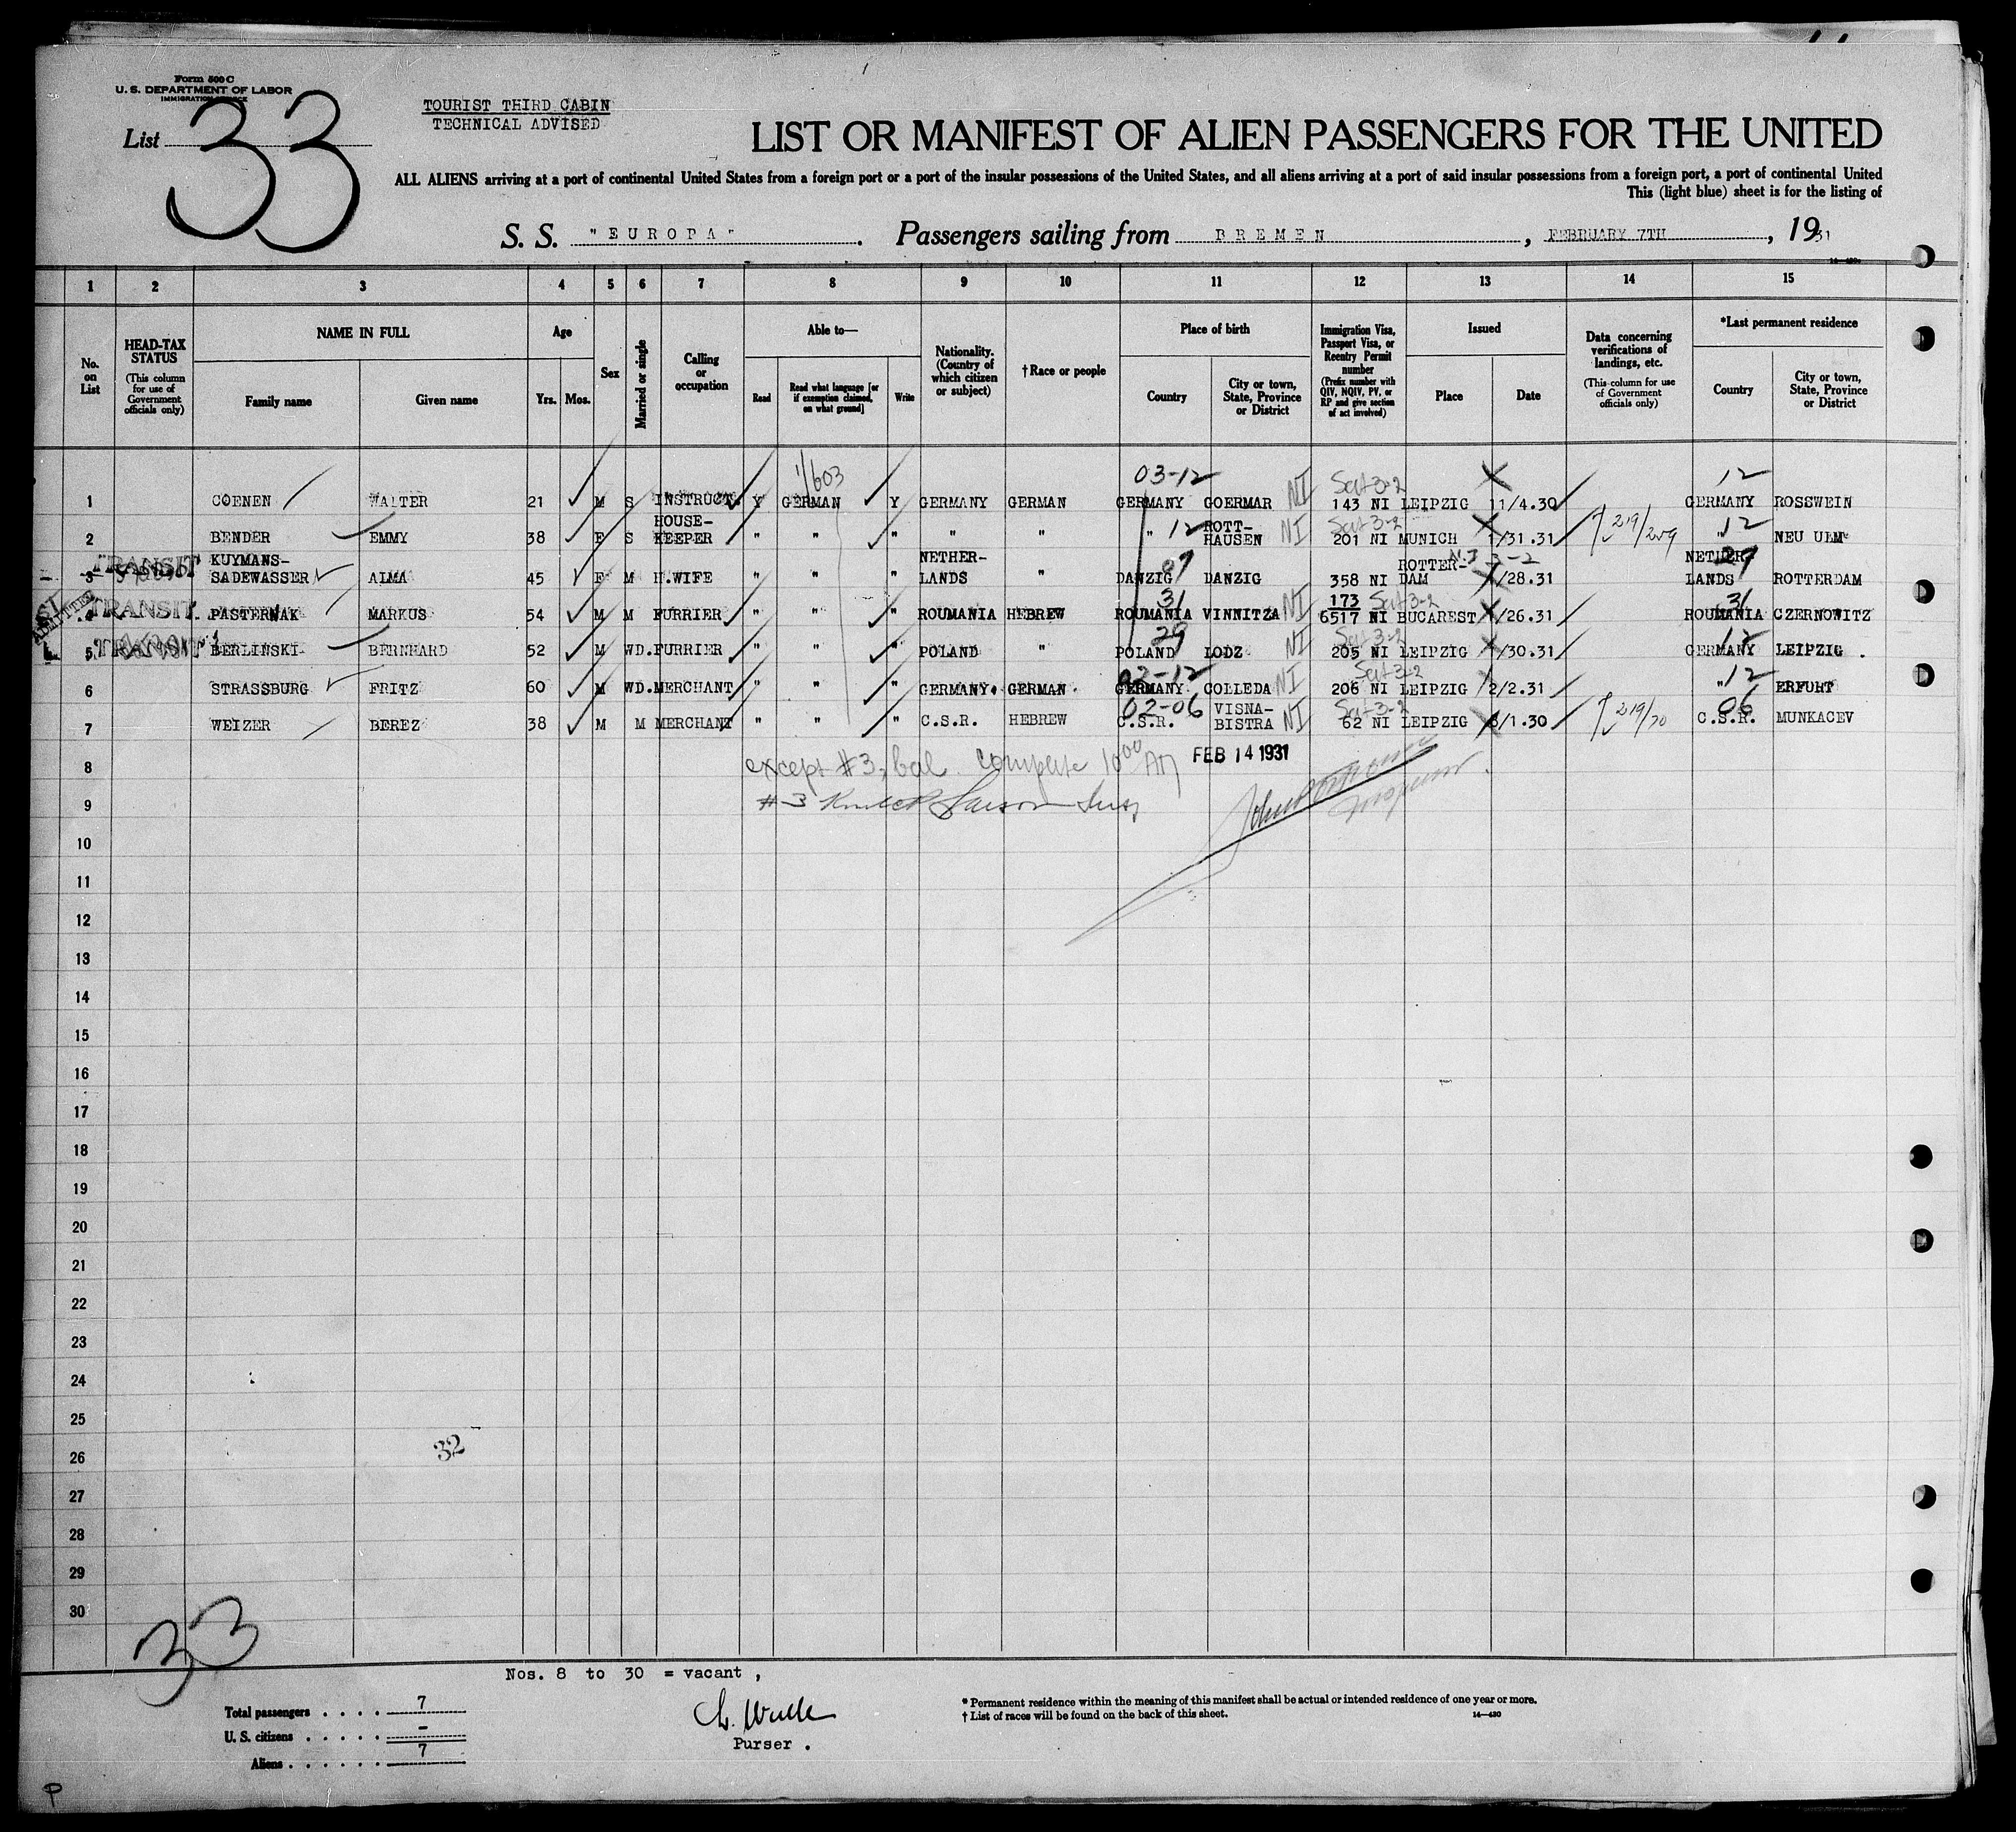 Form 500 C
U. S. DEPARTMENT OF LABOR
IMMIGRATION SERVICE
List 33
TOURIST THIRD CABIN
TECHNICAL ADVISED
LIST OR MANIFEST OF ALIEN PASSENGERS FOR THE UNITED
ALL ALIENS arriving at a port of continental United States from a foreign port or a port of the insular possessions of the United States, and all aliens arriving at a port of said insular possessions from a foreign port, a port of continental United
This (light blue) sheet is for the listing of
S. S. "EUROPA". Passengers sailing from BREMEN, FEBRUARY 7TH, 1931
14-420
1 2 3 4 5 6 7 8 9 10 11 12 13 14 15
No. on List
HEAD-TAX STATUS (This column for use of Government officials only)
NAME IN FULL
Family name Given name
Age
Yrs. Mos.
Sex
Married or single
Calling or occupation
Able to—
Read
Read what language [or if exemption claimed, on what ground]
Write
Nationality. (Country of which citizen or subject)
†Race or people
Place of birth
Country
City or town, State, Province or District
Immigration Visa, Passport Visa, or Reentry Permit number (Prefix number with QIV, NQIV, PV, or RP and give section of act involved)
Issued
Place Date
Data concerning verifications of landings, etc. (This column for use of Government officials only)
*Last permanent residence
Country
City or town, State, Province or District
1/603 03-12 Sect 3-2 12
1 COENEN WALTER 21 M S INSTRUCT. Y GERMAN Y GERMANY GERMAN GERMANY GOERMAR NI 143 NI LEIPZIG 11/4.30 GERMANY ROSSWEIN
2 BENDER EMMY 38 F S HOUSE-KEEPER " " " " " " 12 ROTT-HAUSEN NI Sect 3-2 201 NI MUNICH 1/31.31 219/209 " 12 NEU ULM
TRANSIT
3 KUYMANS-SADEWASSER ALMA 45 F M H.WIFE " " " NETHER-LANDS " DANZIG 07 DANZIG 358 NI ROTTER-DAM N.I 3-2 1/28.31 NETHER-LANDS 29 ROTTERDAM
ADMITTED
TRANSIT
4 PASTERNAK MARKUS 54 M M FURRIER " " " ROUMANIA HEBREW ROUMANIA 31 VINNITZA NI 173 Sect 3-2 6517 NI BUCAREST 1/26.31 ROUMANIA 31 CZERNOWITZ
TRANSIT
5 BERLINSKI BERNHARD 52 M WD. FURRIER " " " POLAND " POLAND 29 LODZ NI Sect 3-2 205 NI LEIPZIG 1/30.31 GERMANY 12 LEIPZIG .
6 STRASSBURG FRITZ 60 M WD. MERCHANT " " " GERMANY. GERMAN. GERMANY 02-12 COLLEDA NI Sect 3-2 206 NI LEIPZIG 2/2.31 " 12 ERFURT
7 WEIZER BEREZ 38 M M MERCHANT " " " C.S.R. HEBREW C.S.R. 02-06 VISNA-BISTRA NI Sect 3-2 62 NI LEIPZIG 8/1.30 219/20 C.S.R. 06 MUNKACEV
8 except #3, bal. complete 10 00 AM FEB 14 1931
9 #3
10
11
12
13
14
15
16
17
18
19
20
21
22
23
24
25
26 32
27
28
29
30
33
Nos. 8 to 30 = vacant ,
Total passengers . . . . 7
U. S. citizens . . . . . -
Aliens . . . . . . 7
Purser .
* Permanent residence within the meaning of this manifest shall be actual or intended residence of one year or more.
† List of races will be found on the back of this sheet.
14—420
P